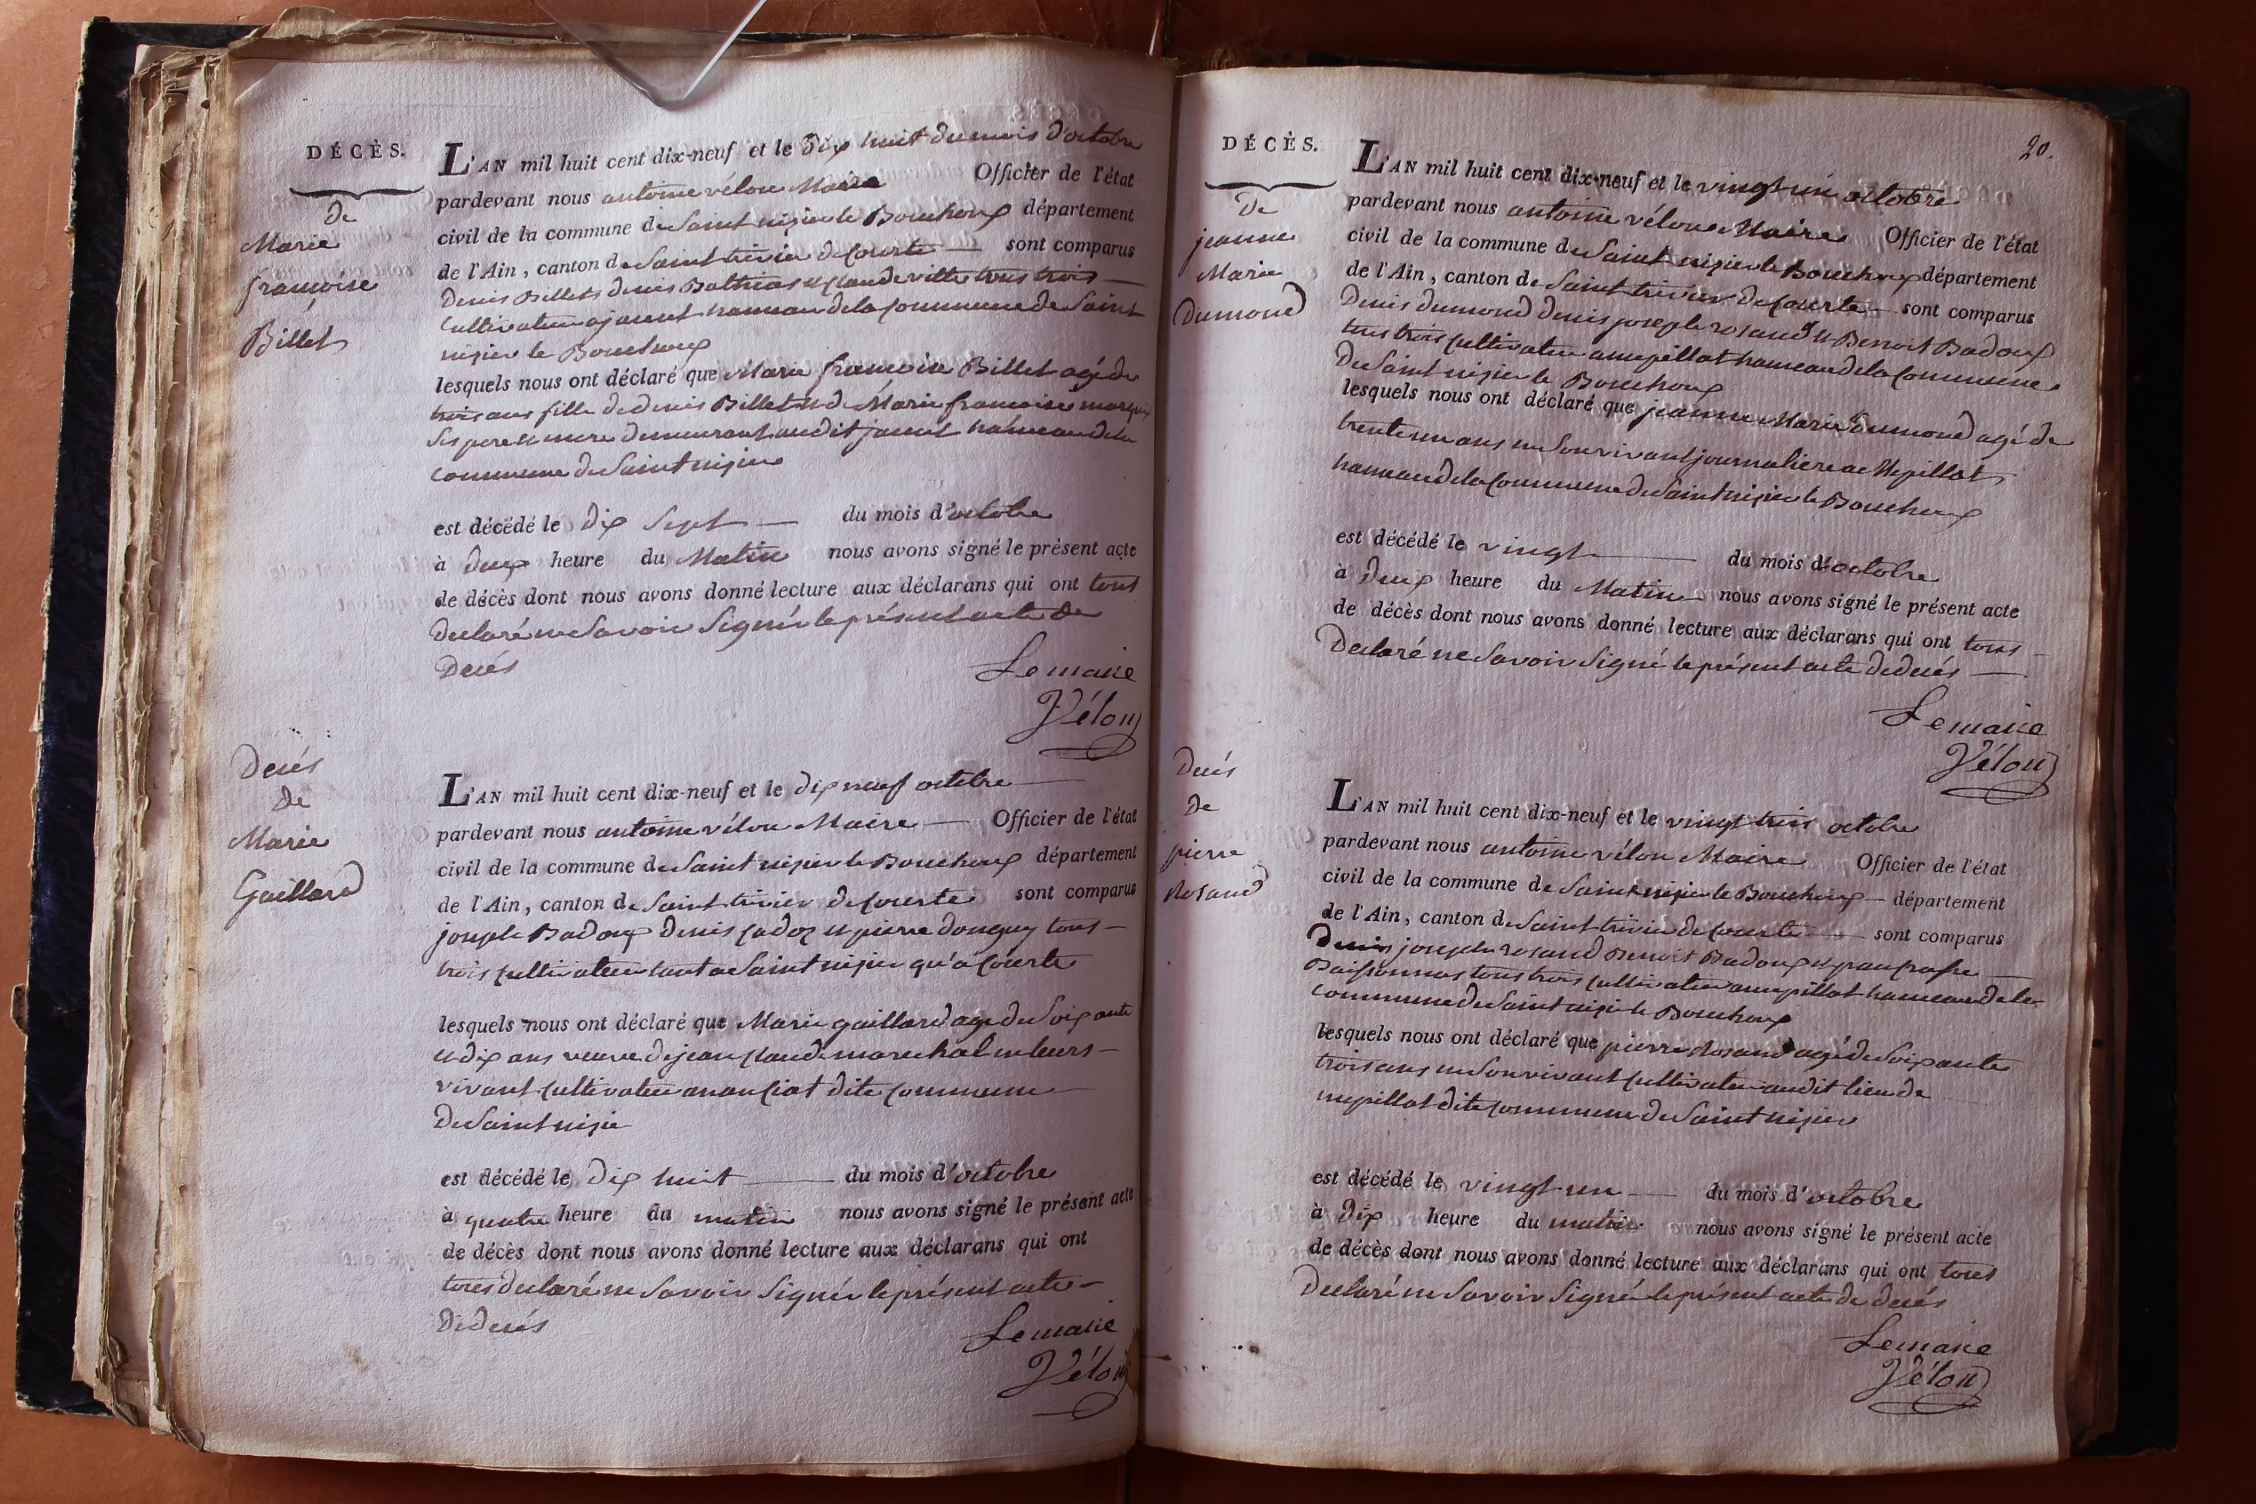 DÉCÈS.
de
Marie
françoise
Billet
L'AN mil huit cent dix-neuf et le dix huit du mois d'octobre
pardevant nous antoine vélou Maire Officier de l'état
civil de la commune de Saint nizier le Bouchoux département
de l'Ain, canton de Saint trivier de Courte sont comparus
Denis Billet denis Bathias et Claude ville tous trois
Cultivateur a jacent hameau de la Commune de Saint
nizier le Bouchoux
lesquels nous ont déclaré que Marie françoise Billet agé de
trois ans fille de denis Billet et de Marie françoise
Ses pere et mere demeurant audit jacent hameau de la
commune de Saint nizier
est décédé le dix Sept du mois d'octobre
à deux heure du Matin nous avons signé le présent acte
de décès dont nous avons donné lecture aux déclarans qui ont tous
declaré ne Savoir Signér le présent acte de
Decés
Le maire
Vélou
Decés
de
Marie
Gaillard
L'AN mil huit cent dix-neuf et le dix neuf octobre
pardevant nous antoine vélou Maire Officier de l'état
civil de la commune de Saint nizier le Bouchoux département
de l'Ain, canton de Saint trivier de Courte sont comparus
joseph Badoux denis Cadoz et pierre donguy tous
trois Cultivateur tant a Saint nizier qu'a Courte
lesquels nous ont déclaré que Marie gaillard agé de Soixante
et dix ans veuve de jean Claude marechal
vivant Cultivateur a dite Commune
De Saint nizier
est décédé le dix huit du mois d'octobre
à quatre heure du matin nous avons signé le présent acte
de décès dont nous avons donné lecture aux déclarans qui ont
tous declaré ne Savoir Signér le présent acte
De decés
Le maire
Vélou
20.
DÉCÈS.
De
jeanne
Marie
Dumond
L'AN mil huit cent dix-neuf et le vingt un octobre
pardevant nous antoine vélou Maire Officier de l'état
civil de la commune de Saint nizier le Bouchoux département
de l'Ain, canton de Saint trivier de Courte sont comparus
Denis dumond denis joseph rosand et Benoit Badoux
tous trois Cultivateur a mépillat hameau de la Commune
De Saint nizier le Bouchoux
lesquels nous ont déclaré que jeanne Marie Dumond agé de
trente un ans en Son vivant journaliere a Mépillat
hameau de la Commune de Saint nizier le Bouchoux
est décédé le vingt du mois d'octobre
à deux heure du Matin nous avons signé le présent acte
de décès dont nous avons donné lecture aux déclarans qui ont tous
Declaré ne Savoir Signé le présent acte de decés
Le maire
Vélou
Decés
de
pierre
Rosand
L'AN mil huit cent dix-neuf et le vingt trois octobre
pardevant nous antoine vélou Maire Officier de l'état
civil de la commune de Saint nizier le Bouchoux département
de l'Ain, canton de Saint trivier de Courte sont comparus
Denis joseph rosand Benoit Badoux et
tous trois Cultivateur a mépillat hameau de la
Commune de Saint nizier le Bouchoux
lesquels nous ont déclaré que pierre Rosand agé de Soixante
trois ans en Son vivant Cultivateur audit lieu de
mépillat dite Commune de Saint nizier
est décédé le vingt un du mois d'octobre
à dix heure du matin nous avons signé le présent acte
de décès dont nous avons donné lecture aux déclarans qui ont tous
Declaré ne Savoir Signé le présent acte de decés
Le maire
Vélou